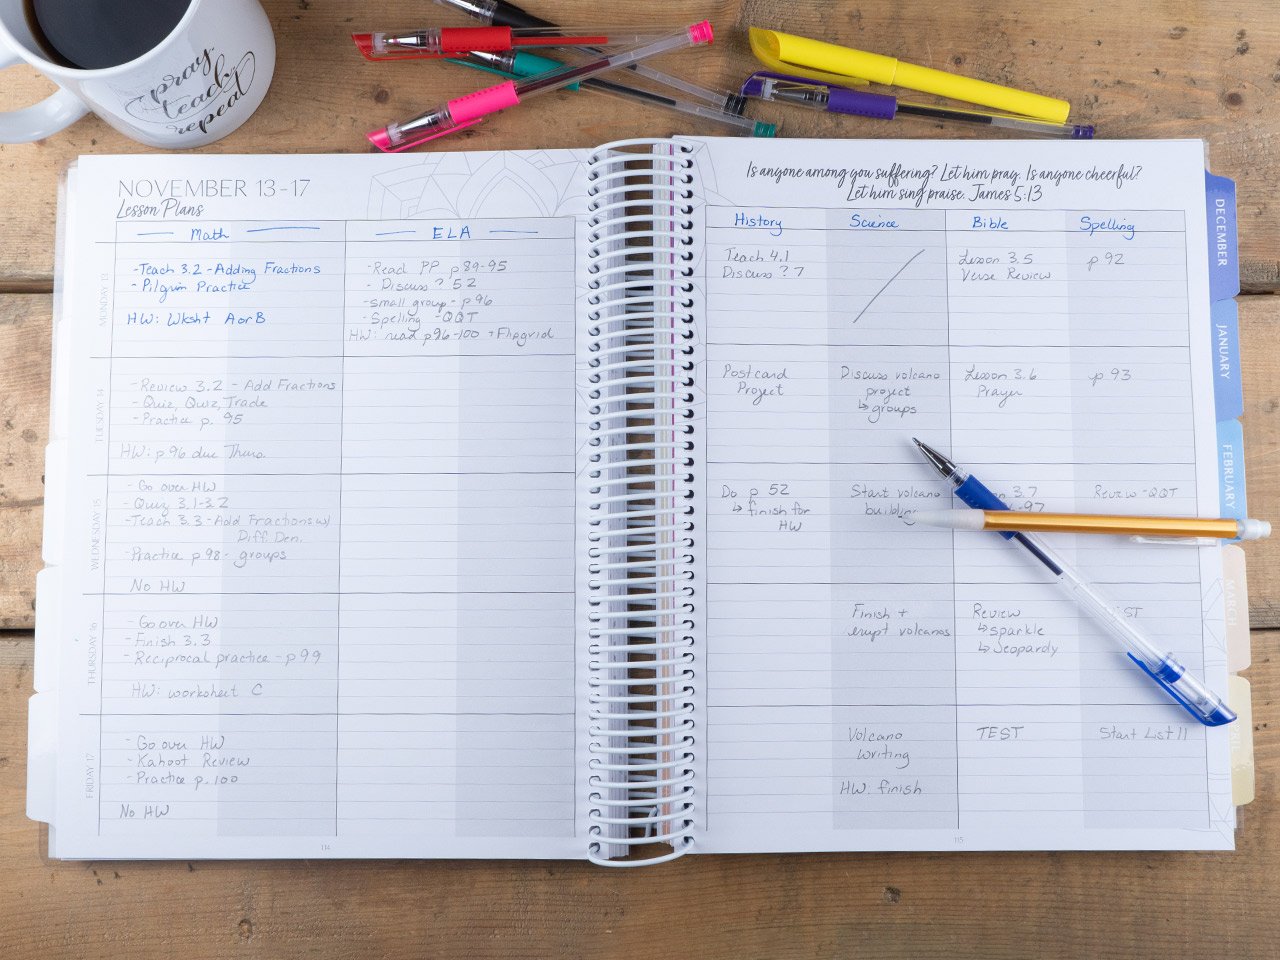 pray
teach
repeat
NOVEMBER 13-17
Lesson Plans
Math
ELA
MONDAY 13
-Teach 3.2 - Adding Fractions
- Pilgrim Practice
HW: Wksht A or B
-Read PP p 89-95
- Discuss ? 52
-small group - p 96
-Spelling -QQT
HW: read p96-100 + Flipgrid
TUESDAY 14
-Review 3.2 - Add Fractions
- Quiz, Quiz, Trade
-Practice p. 95
HW: p 96 due Thurs.
WEDNESDAY 15
- Go over HW
- Quiz 3.1-3.2
-Teach 3.3 - Add Fractions w/
Diff. Den.
-Practice p 98 - groups
No HW
THURSDAY 16
-Go over HW
-Finish 3.3
-Reciprocal practice - p 99
HW: worksheet C
FRIDAY 17
- Go over HW
- Kahoot Review
-Practice p. 100
No HW
114
Is anyone among you suffering? Let him pray. Is anyone cheerful?
Let him sing praise. James 5:13
History
Science
Bible
Spelling
Teach 4.1
Discuss ? 7
Lesson 3.5
Verse Review
p 92
Postcard
Project
Discuss volcano
project
↳ groups
Lesson 3.6
Prayer
p 93
Do p 52
↳ finish for
HW
Start volcano
building
3.7
-97
Review -QQT
Finish +
erupt volcanos
Review
↳ sparkle
↳ Jeopardy
Volcano
writing
HW: finish
TEST
Start List 11
115
DECEMBER
JANUARY
FEBRUARY
MARCH